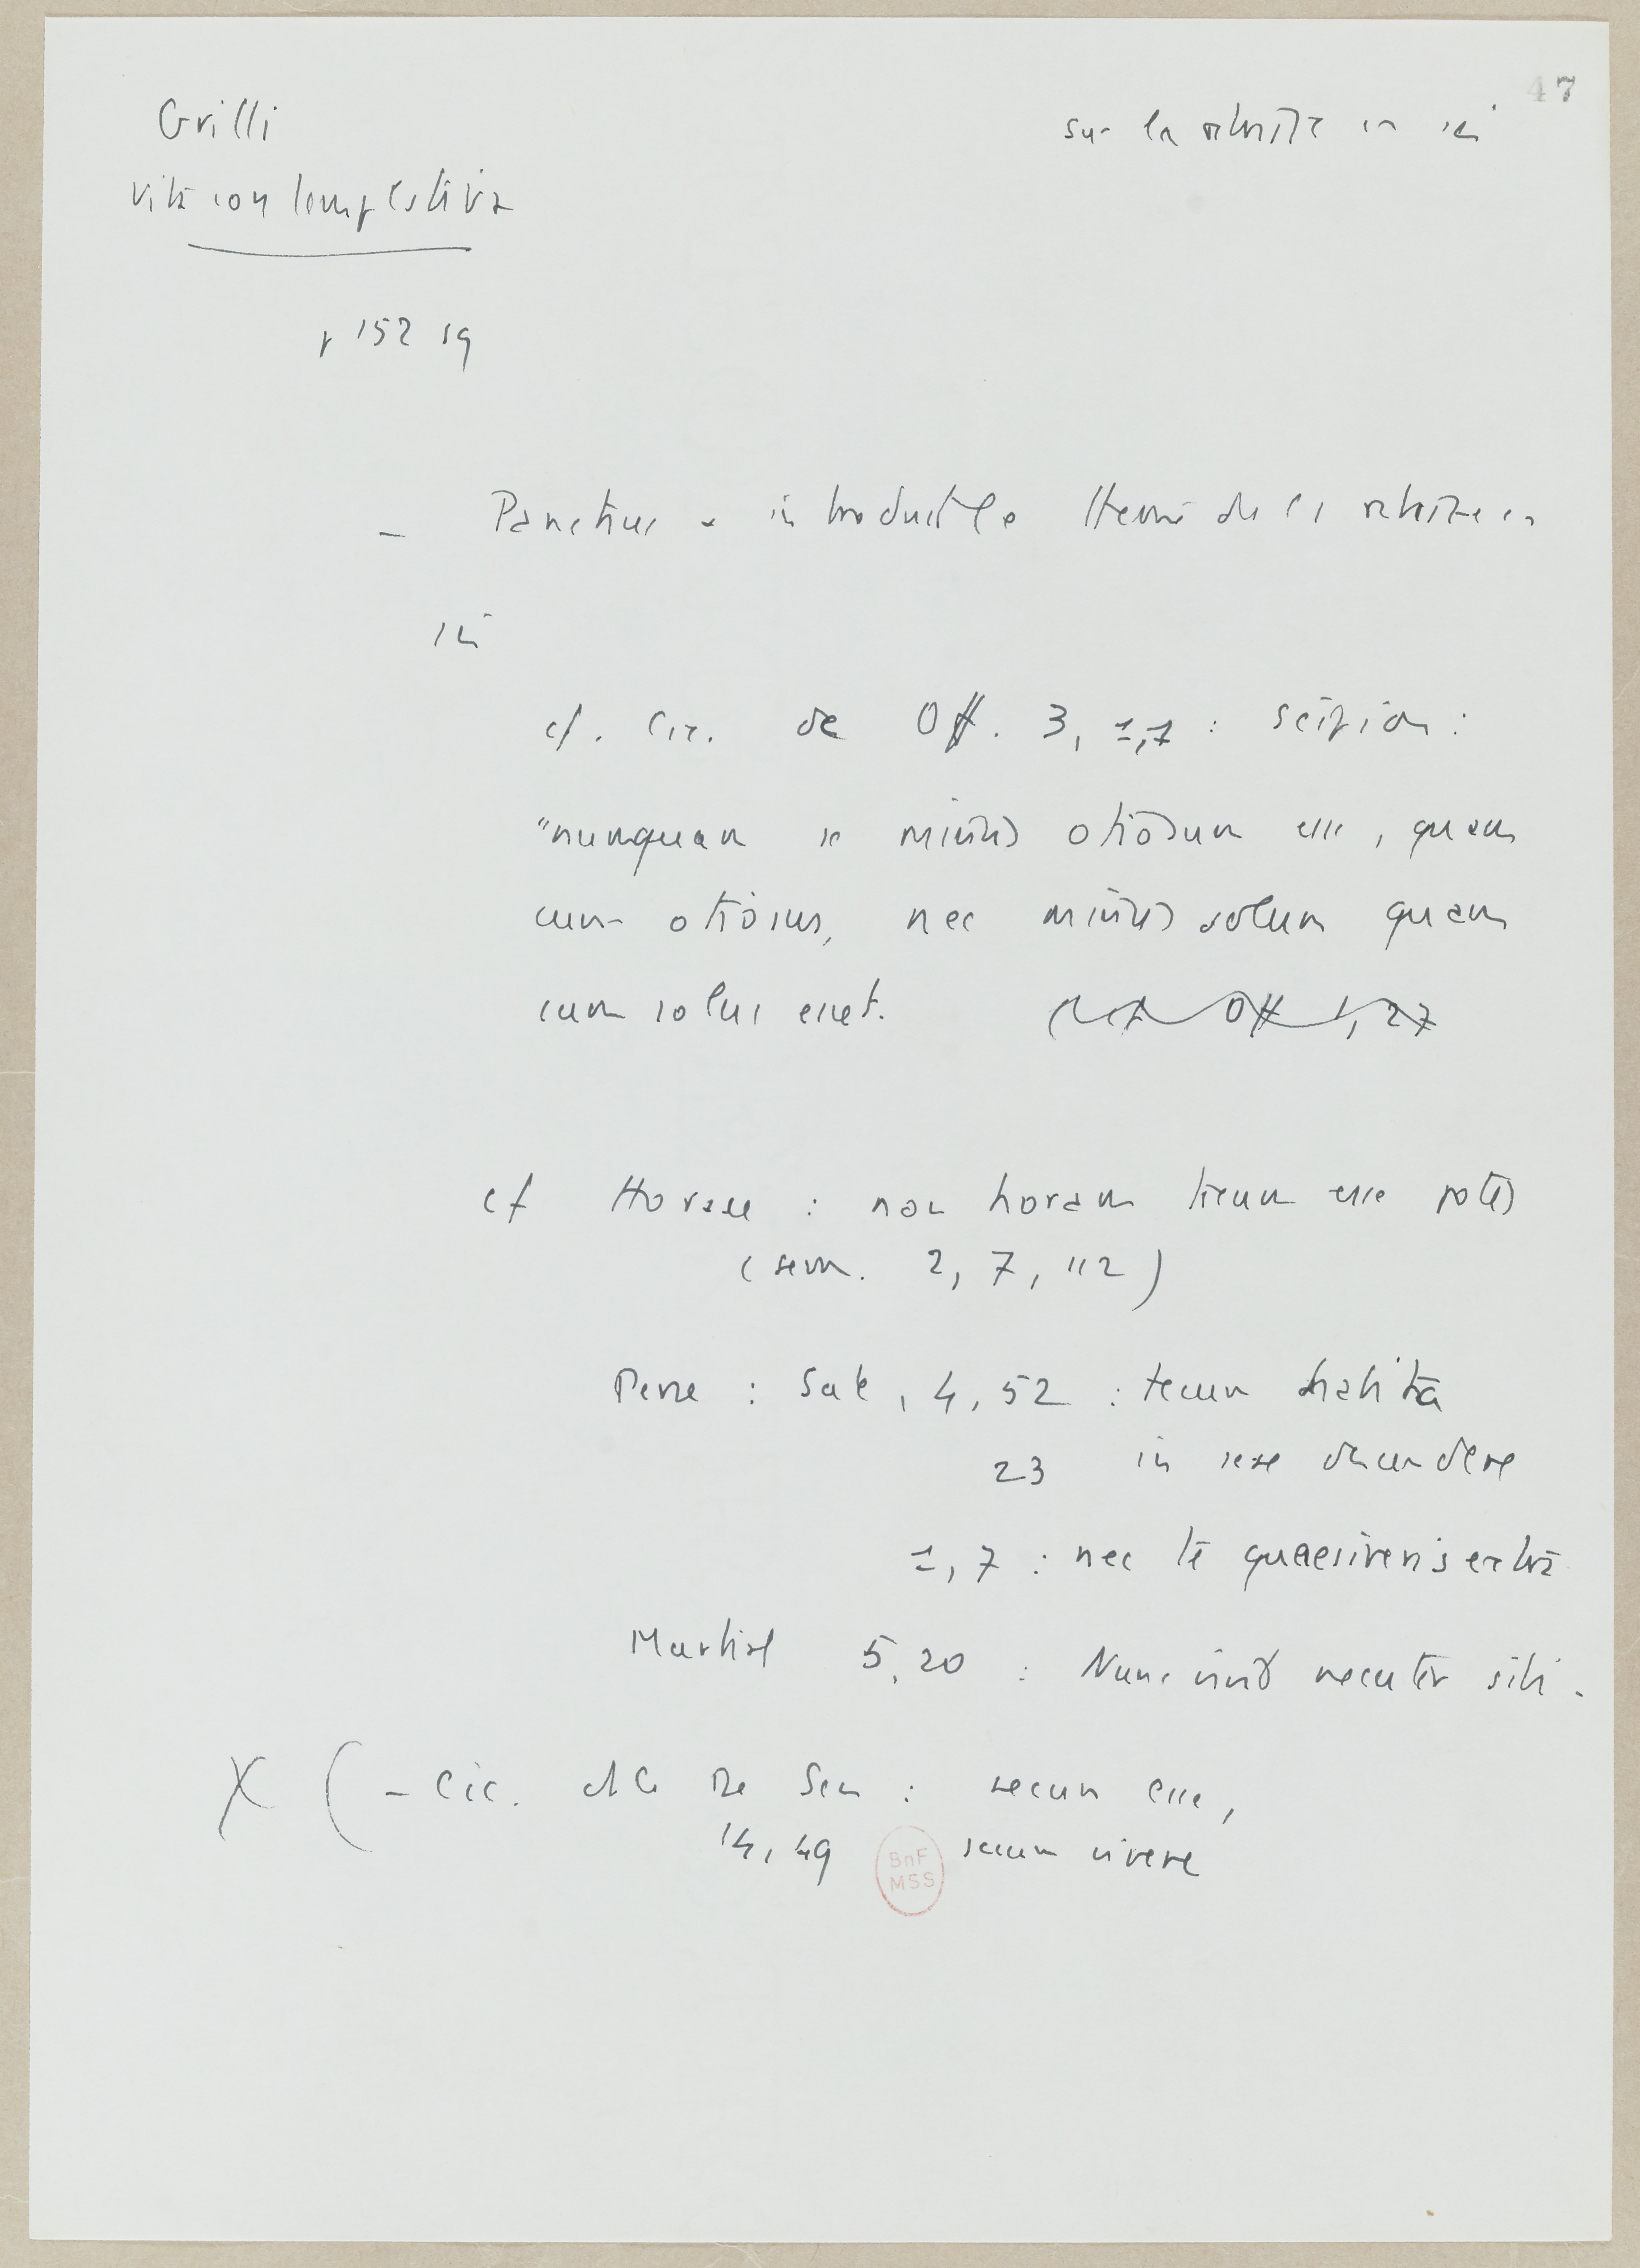 47
Grilli
sur la retraite en soi
vita contemplativa
p 152 sq
- Panetius a introduit le thème de la retraite en
soi
cf. Cic. de Off. 3, 1,7 : Scipion :
"nunquam se minus otiosum esse, quam
cum otiosus, nec minus solum quam
cum solus esset.
Off 1, 27
cf Horace : non horam tecum esse potes
(serm. 2, 7, 112)
Perse : Sat, 4, 52 : tecum habita
23 in sese descendere
1, 7 : nec te quaesiveris extra
Martial 5,20 : Nunc vivit necuter sibi.
X ( - Cic. de Sen : secum esse,
14, 49 secum vivere
BnF
MSS